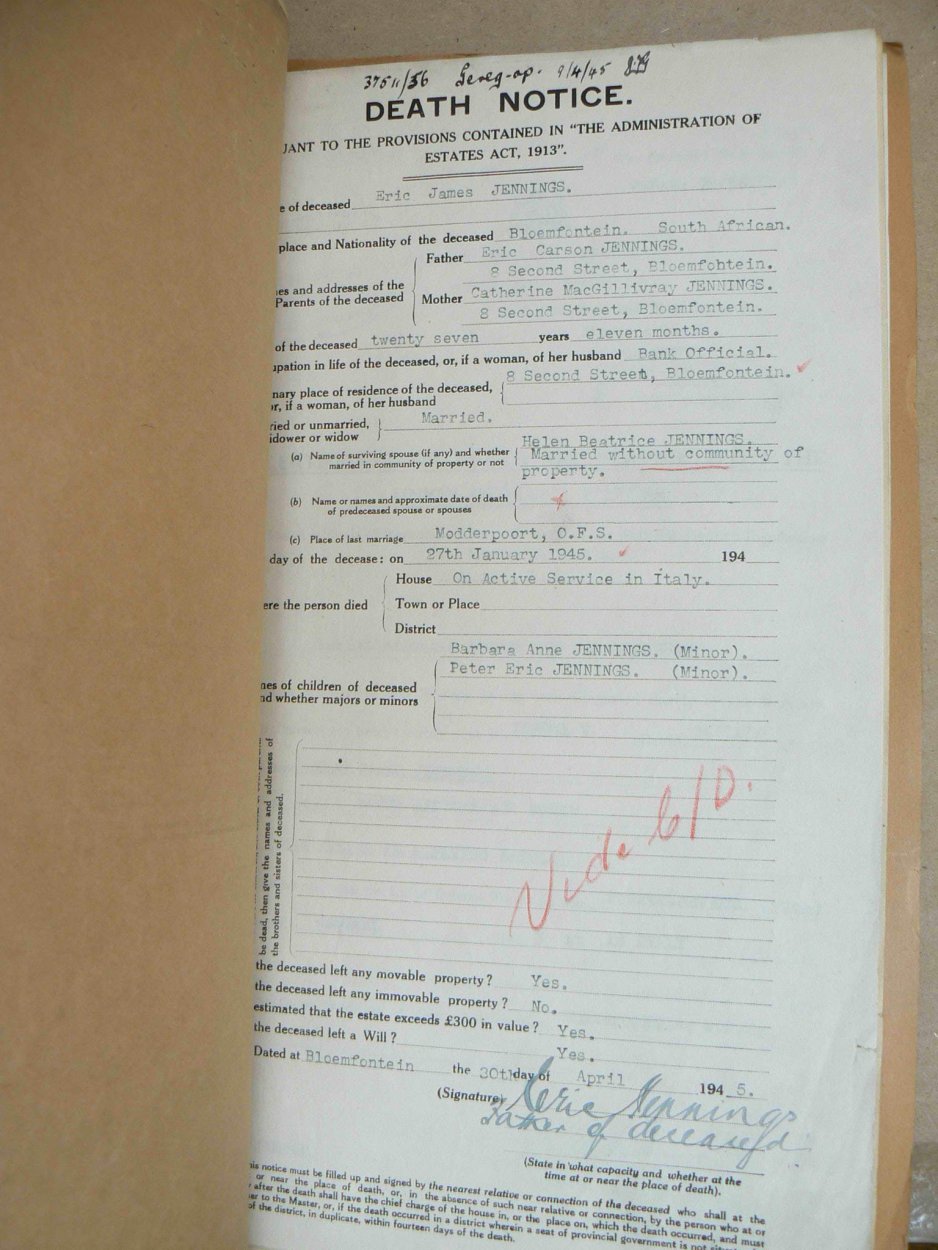 37511/56 Gereg-op. 9/4/45
DEATH NOTICE.
UANT TO THE PROVISIONS CONTAINED IN "THE ADMINISTRATION OF
ESTATES ACT, 1913".
e of deceased Eric James JENNINGS.
place and Nationality of the deceased Bloemfontein. South African.
Father Eric Carson JENNINGS.
8 Second Street, Bloemfohtein.
es and addresses of the
Parents of the deceased
Mother Catherine MacGillivray JENNINGS.
8 Second Street, Bloemfontein.
of the deceased twenty seven years eleven months.
upation in life of the deceased, or, if a woman, of her husband Bank Official.
nary place of residence of the deceased, 8 Second Street, Bloemfontein.
or, if a woman, of her husband
ried or unmarried, Married.
idower or widow
Helen Beatrice JENNINGS.
(a) Name of surviving spouse (if any) and whether Married without community of
married in community of property or not
property.
(b) Name or names and approximate date of death
of predeceased spouse or spouses
(c) Place of last marriage Modderpoort, O.F.S.
day of the decease: on 27th January 1945. 194
House On Active Service in Italy.
ere the person died Town or Place
District
Barbara Anne JENNINGS. (Minor).
Peter Eric JENNINGS. (Minor).
nes of children of deceased
nd whether majors or minors
be dead, then give the names and addresses of
the brothers and sisters of deceased.
Vide 6/D.
the deceased left any movable property? Yes.
the deceased left any immovable property? No.
estimated that the estate exceeds £300 in value? Yes.
the deceased left a Will? Yes.
Dated at Bloemfontein the 30th day of April 194 5.
(Signature) Eric Jennings
Father of deceased
(State in what capacity and whether at the
time at or near the place of death).
his notice must be filled up and signed by the nearest relative or connection of the deceased who shall at the
or near the place of death, or, in the absence of such near relative or connection, by the person who at or
after the death shall have the chief charge of the house in, or the place on, which the death occurred, and must
er to the Master, or, if the death occurred in a district wherein a seat of provincial government is not
of the district, in duplicate, within fourteen days of the death.